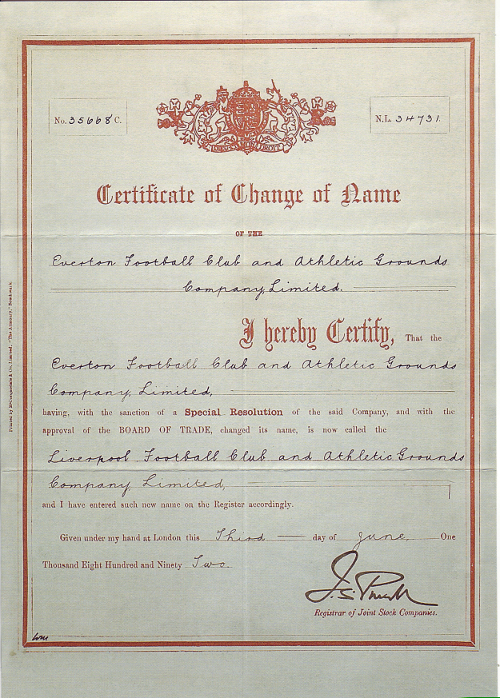 No. 35668 C.
N.L. 34731.
Certificate of Change of Name
OF THE
Everton Football Club and Athletic Grounds
Company, Limited.
I hereby Certify, That the
Everton Football Club and Athletic Grounds
Company, Limited,
having, with the sanction of a Special Resolution of the said Company, and with the
approval of the BOARD OF TRADE, changed its name, is now called the
Liverpool Football Club and Athletic Grounds
Company Limited,
and I have entered such new name on the Register accordingly.
Given under my hand at London this Third day of June One
Thousand Eight Hundred and Ninety Two.
Registrar of Joint Stock Companies.